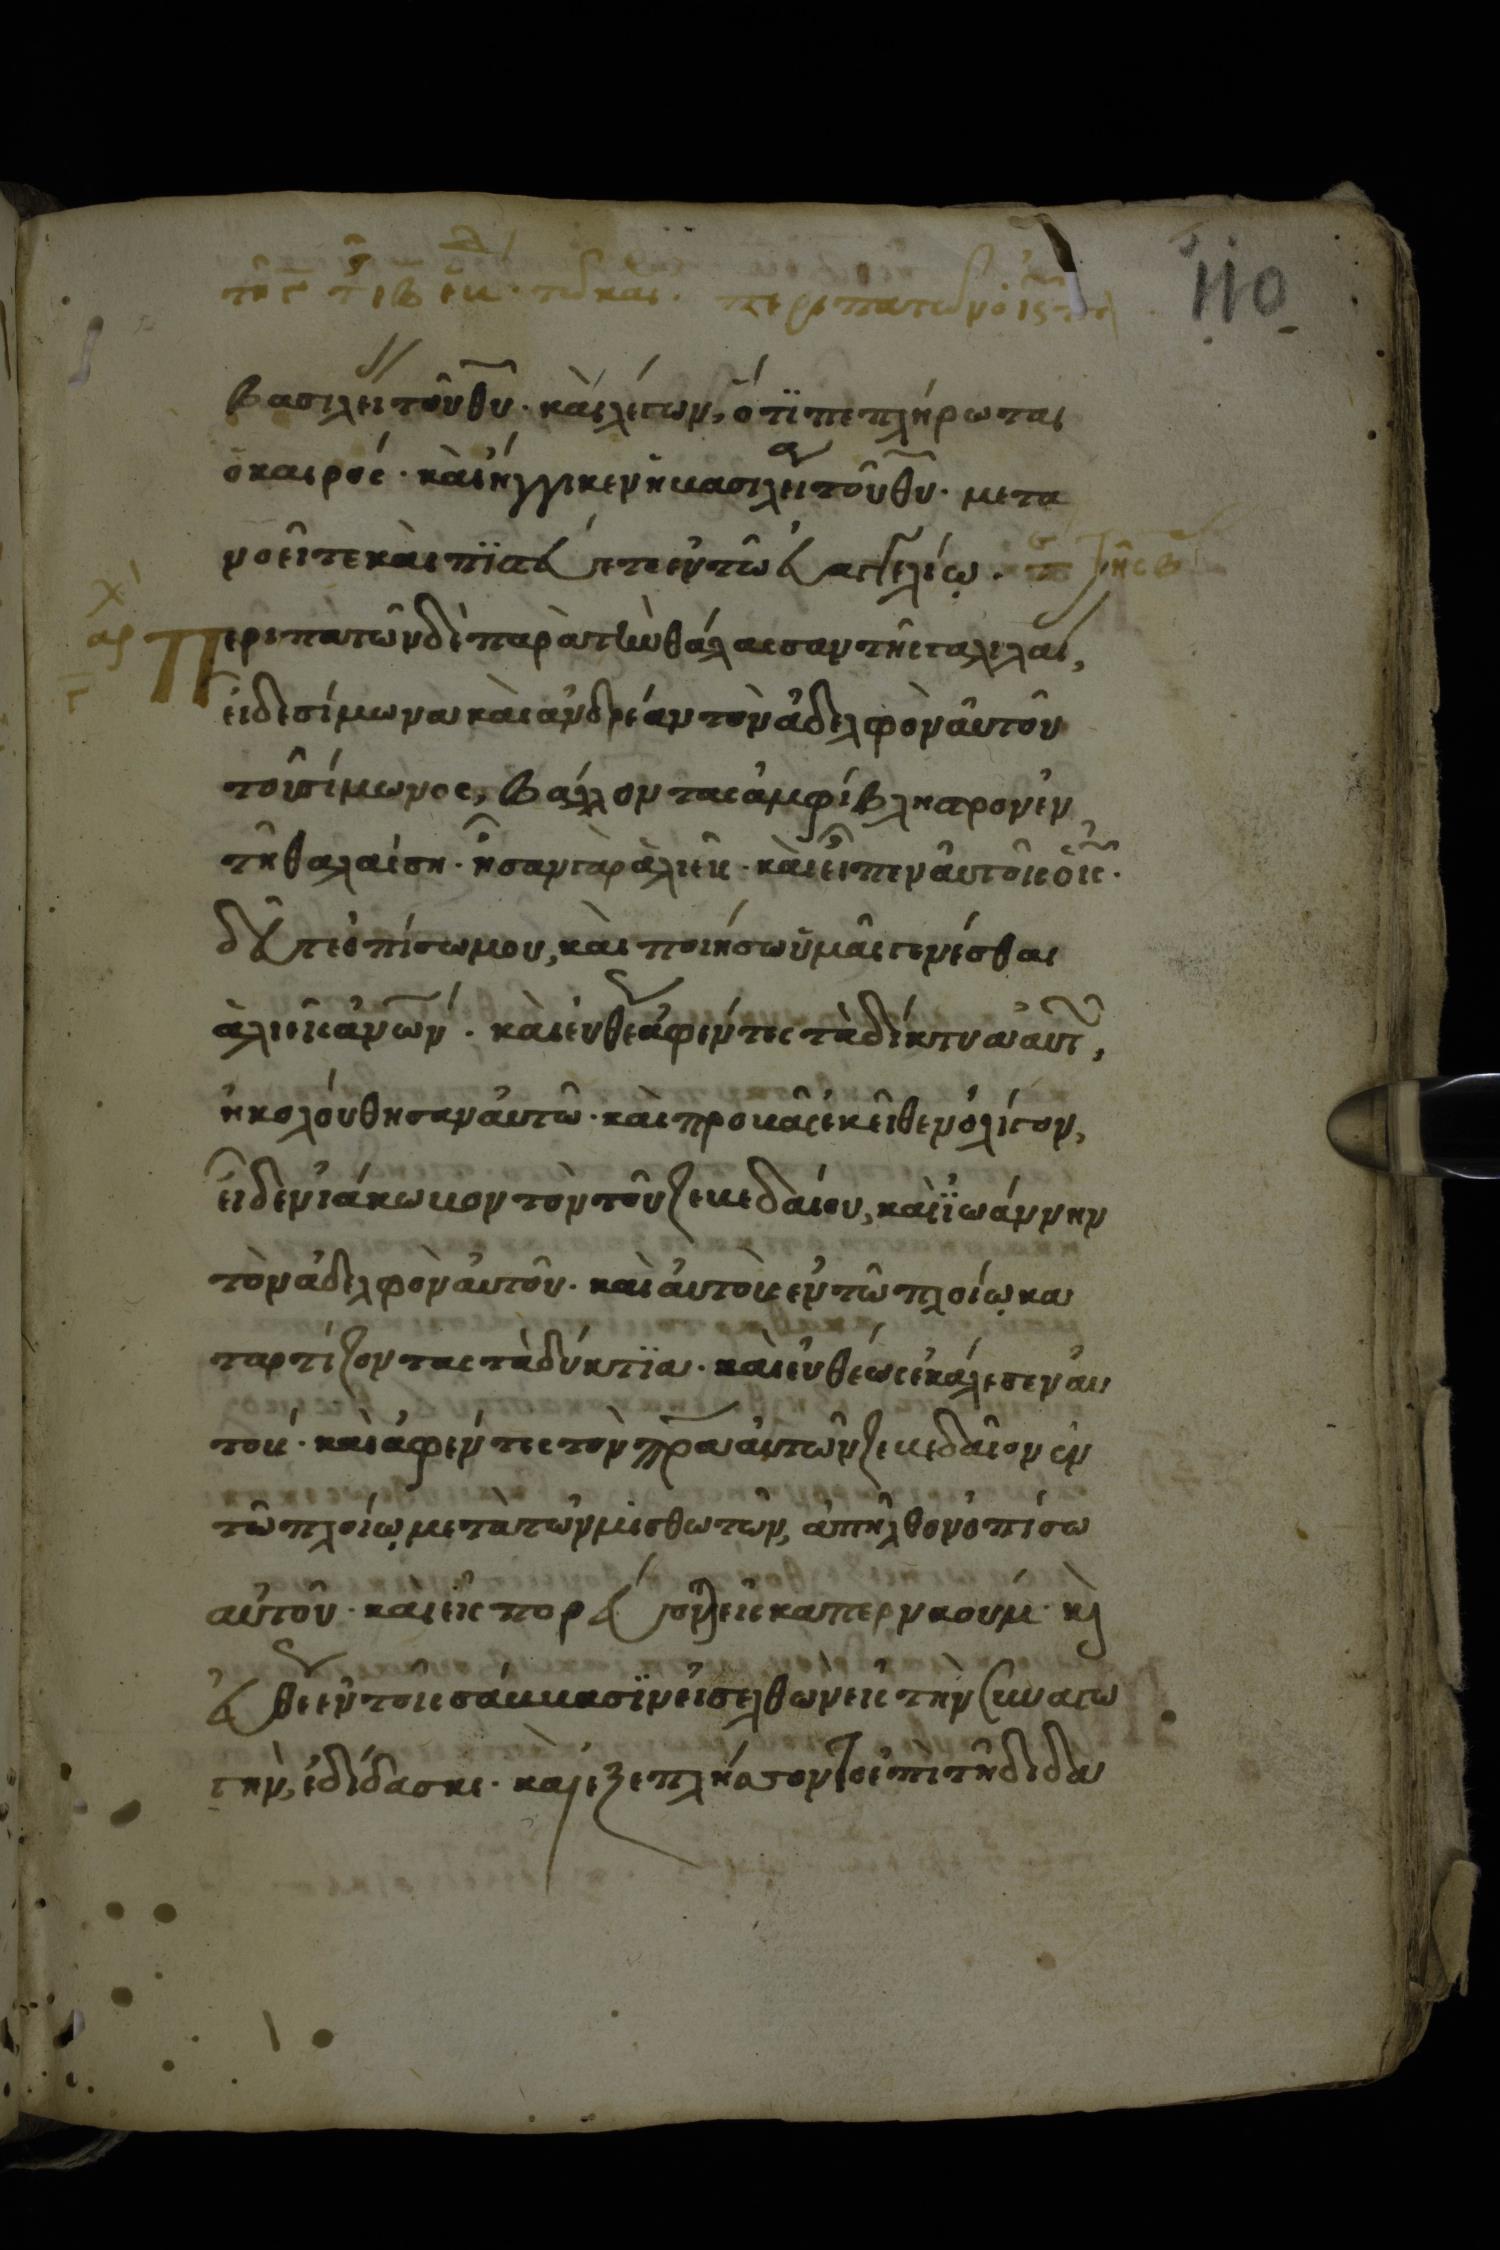 110
βασιλεί τοῦ θυ̅· καὶ λέγων, ὅτϊ πεπλήρωται
ὁ καιρός· καὶ ἤγγικεν ἡ βασιλεία τοῦ θυ̅· μετα
νοεῖτε καὶ πϊστεύετε ἐν τῶ εὐαγγελίῳ.
Περιπατῶν δὲ παρὰ τὴν θάλασσαν τῆς γαλιλαί,
εἶδε σίμωνα καὶ ἀνδρέαν τὸν ἀδελφὸν αὐτοῦ
τοῦ σίμωνος, βάλλοντας ἀμφίβληστρον ἐν
τῆ θαλάσση· ἦσαν γὰρ ἁλιεῖς· καὶ εἶπεν αὐτοῖς ὁ ις̅·
δεῦτε ὀπίσω μου, καὶ ποιήσω ὑμᾶς γενέσθαι
ἁλιεῖς ἀνων̅· καὶ εὐθέως ἀφέντες τὰ δίκτυα αὐτ,
ἠκολούθησαν αὐτῶ· καὶ προβὰς ἐκεῖθεν ὀλίγον,
εἶδεν ἰάκωβον τὸν τοῦ ζεβεδαίου, καὶ ϊωάννην
τὸν ἀδελφὸν αὐτοῦ· καὶ αὐτοὺς ἐν τῶ πλοίῳ κα
ταρτίζοντας τὰ δύκτϊα· καὶ εὐθέως ἐκάλεσεν αὐ
τούς· καὶ ἀφέντες τὸν πρα̅ αὐτῶν ζεβεδαῖον ἐν
τῶ πλοίῳ μετὰ τῶν μισθωτῶν, ἀπῆλθον ὀπίσω
αὐτοῦ· καὶ εἰσπορεύονται εἰς καπερναούμ· κ
εὐθέως ἐν τοῖς σάββασϊν εἰσελθὼν εἰς τὴν συναγω
γὴν, ἐδίδασκε· καὶ ἐξεπλήσσοντο ἐπὶ τῆ διδα